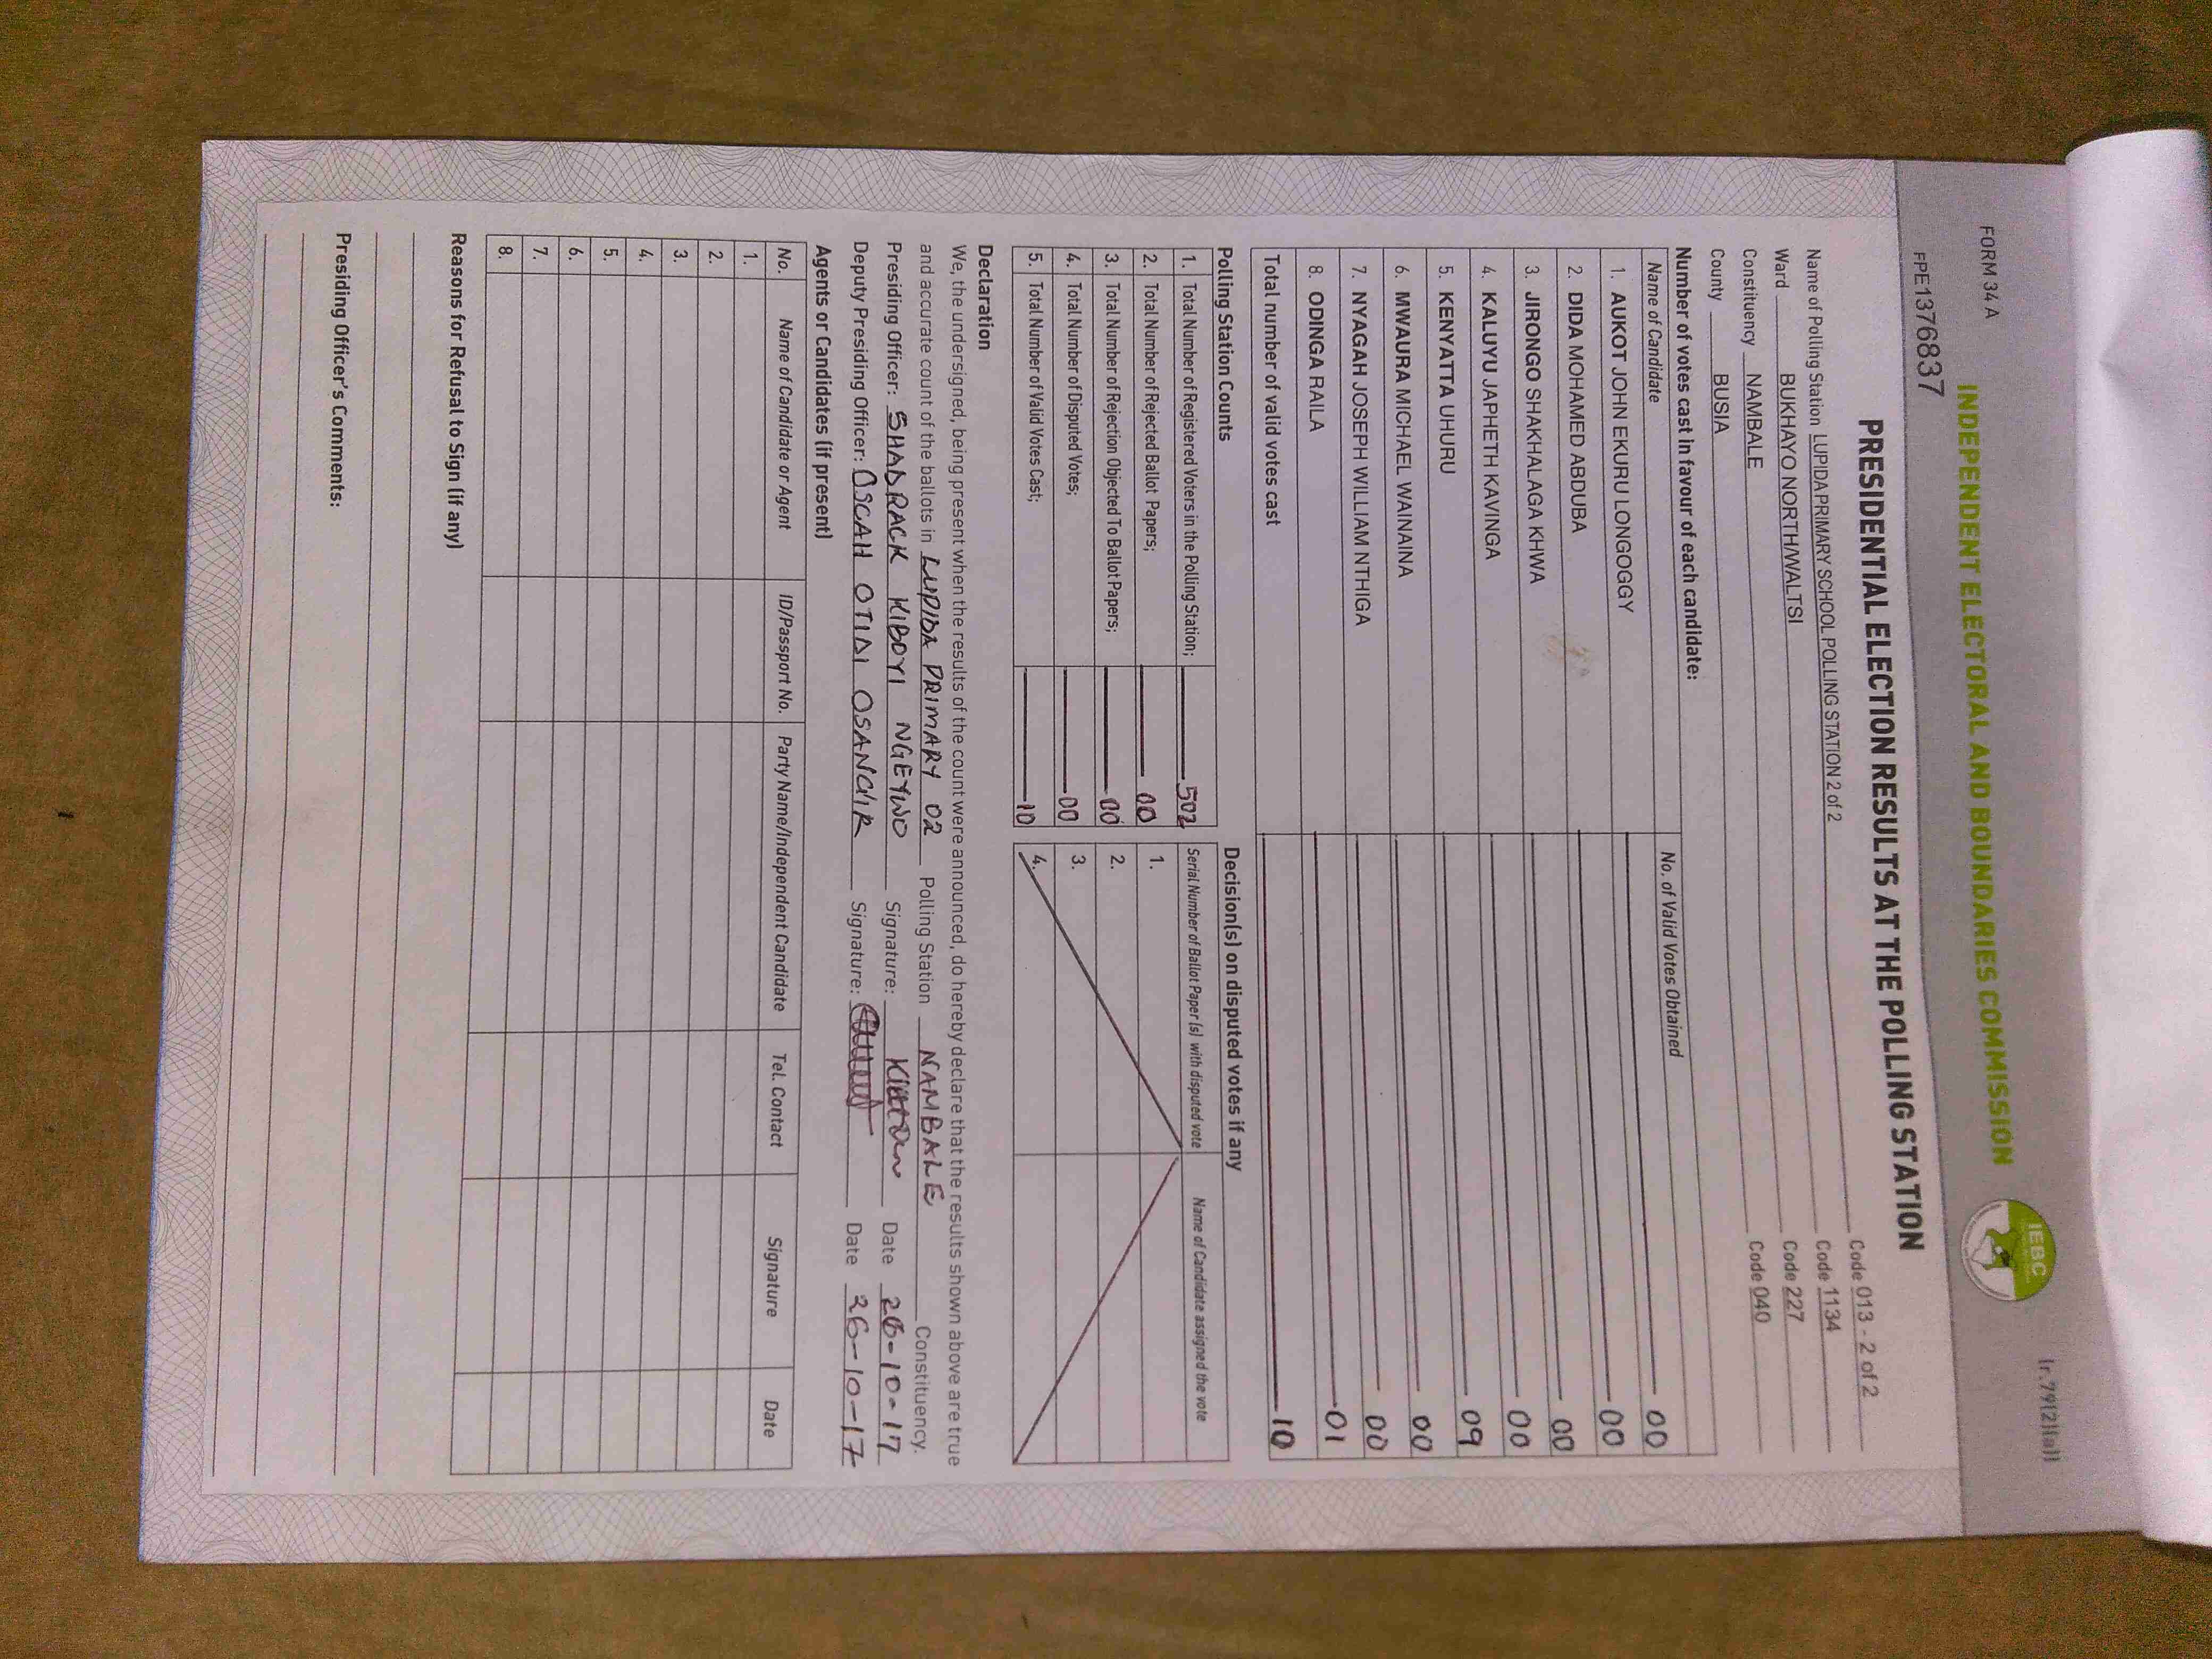 FORM 34 A
Ir.79(2)(a)
INDEPENDENT ELECTORAL AND BOUNDARIES COMMISSION
IEBC
FPE1376837
PRESIDENTIAL ELECTION RESULTS AT THE POLLING STATION
Name of Polling Station LUPIDA PRIMARY SCHOOL POLLING STATION 2 of 2 Code 013 - 2 of 2
Ward BUKHAYO NORTH/WALTSI Code 1134
Constituency NAMBALE Code 227
County BUSIA Code 040
Number of votes cast in favour of each candidate:
Name of Candidate No. of Valid Votes Obtained
1. AUKOT JOHN EKURU LONGOGGY 00
2. DIDA MOHAMED ABDUBA 00
3. JIRONGO SHAKHALAGA KHWA 00
4. KALUYU JAPHETH KAVINGA 00
5. KENYATTA UHURU 09
6. MWAURA MICHAEL WAINAINA 00
7. NYAGAH JOSEPH WILLIAM NTHIGA 00
8. ODINGA RAILA 01
Total number of valid votes cast 10
Polling Station Counts
1. Total Number of Registered Voters in the Polling Station; 502
2. Total Number of Rejected Ballot Papers; 00
3. Total Number of Rejection Objected To Ballot Papers; 00
4. Total Number of Disputed Votes; 00
5. Total Number of Valid Votes Cast; 10
Decision(s) on disputed votes if any
Serial Number of Ballot Paper (s) with disputed vote Name of Candidate assigned the vote
1.
2.
3.
4.
Declaration
We, the undersigned, being present when the results of the count were announced, do hereby declare that the results shown above are true
and accurate count of the ballots in LUPIDA PRIMARY 02 Polling Station NAMBALE Constituency.
Presiding Officer: SHADRACK KIBOYI NGEYWO Signature: Date 26-10-17
Deputy Presiding Officer: OSCAH OTIDI Signature: Date 26-10-17
Agents or Candidates (if present)
No. Name of Candidate or Agent ID/Passport No. Party Name/Independent Candidate Tel. Contact Signature Date
1.
2.
3.
4.
5.
6.
7.
8.
Reasons for Refusal to Sign (if any)
Presiding Officer's Comments: